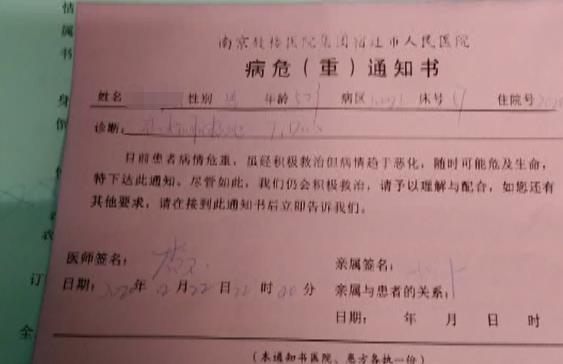 情
属
书
身
南京鼓楼医院集团宿迁市人民医院
病危（重）通知书
姓名 性别 男 年龄 病区 床号 住院号
诊断：
目前患者病情危重，虽经积极救治但病情趋于恶化，随时可能危及生命，
特下达此通知。尽管如此，我们仍会积极救治，请予以理解与配合，如您还有
其他要求，请在接到此通知书后立即告诉我们。
医师签名： 亲属签名：
日期：2020年 月22日22时00分 亲属与患者的关系：
日期： 年 月 日 时
订
全
（本通知书医院、患方各执一份）